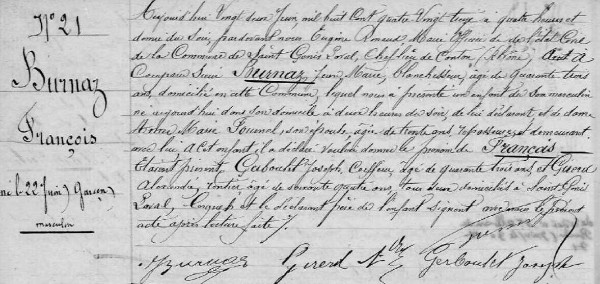 N° 21
Burnaz
François
né le 22 Juin) Garçon)
masculin
Aujourd'hui Vingt deux Juin mil huit Cent quatre Vingt à quatre heures et
demie du Soir, pardevant nous Eugène Maire Officier de l'état Civil
de la Commune de Saint Genis Laval, Chef lieu de Canton (Rhône) Acte à
Comparu Sieur Burnaz Jean Marie, blanchisseur, âgé de quarante trois
ans, domicilié en cette Commune, lequel nous a présenté un enfant du Sexe masculin
né aujourd'hui dans son domicile à heures du Soir, de lui déclarant, et de dame
Marie Fournel son épouse, âgée de trente ans, repasseuse, demeurant
avec lui auquel enfant il a déclaré vouloir donner le prénom de François
étaient présent Gerboulet Joseph, Coiffeur, âgé de quarante trois ans, et Girerd
Alexandre, rentier âgé de soixante quatre ans, tous deux domiciliés à Saint Genis
Laval, et le déclarant père de l'enfant signent avec nous le présent
acte après lecture faite).
Burnaz Girerd Gerboulet Joseph